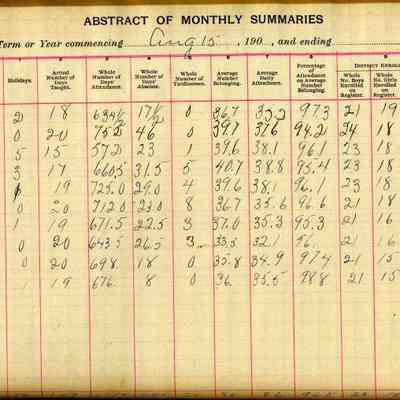 ABSTRACT OF MONTHLY SUMMARIES
Term or Year commencing Aug 15, 190 , and ending
Holidays. Actual Number of Days Taught. Whole Number of Days' Attendance. Whole Number of Days' Absence. Whole Number of Tardinesses. Average Number Belonging. Average Daily Attendance. Percentage of Attendance on Average Number Belonging. DISTRICT ENROLL Whole No. Boys Enrolled on Register. Whole No. Girls Enrolled on Register.
2 18 634½ 17½ 0 36.7 97.3 21 19
0 20 752 46 0 39.7 376 94.2 24 18
5 15 572 23 1 39.6 38.1 96.1 23 18
3 17 660.5 31.5 5 40.7 38.8 95.4 23 18
1 19 725.0 29.0 4 39.6 38.1 96.1 23 18
0 20 712.0 23.0 8 36.7 35.6 96.6 21 18
1 19 671.5 22.5 3 37.0 35.3 95.3 21 16
0 20 643.5 26.5 3 33.5 32.1 96. 21 16
0 20 698. 18 0 35.8 34.9 97.4 21 15
1 19 676. 8 0 36. 35.5 98.8 21 15